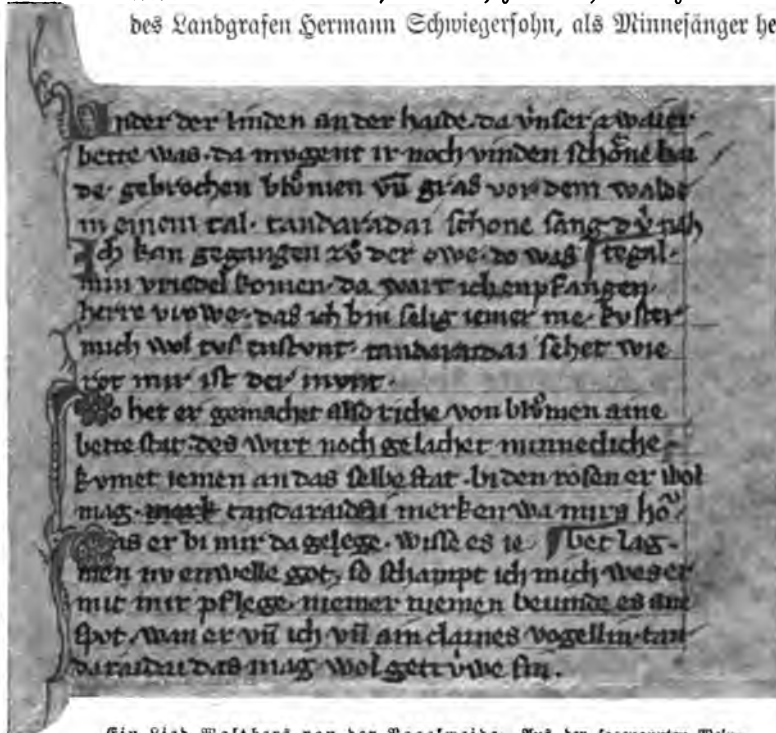 des Landgrafen Hermann Schwiegersohn, als Minnesänger he
Vnder der linden an der haide. da vnser zwaier
bette was. da mugent ir noch vinden schone bai
de. gebrochen blůmen vñ gras vor dem walde
in einem tal. tandaradai schone sang dv̓ nah
Ich kan gegangen zů der owe. do was tegal.
min vriedel komen. da wart ich enpfangen.
herre vrowe. das ich bin selig iemer me. kvster
mich wol tvsent stvnt. tandaradai sehet wie
rot mir ist der mvnt.
Do het er gemachet also riche von blůmen aine
bette stat. des wirt noch gelachet minnecliche
kvmet iemen an das selbe stat. bi den rosen er wol
mag. tandaradai merken wa mirs hŏ
Das er bi mir da gelege. wisse es ie bet lag.
men nv enwelle got, so schampt ich mich wes er
mit mir pflege. niemer niemen bevinde es ane
spot. wan er vñ ich vñ ain claines vogellin. tan
daradai das mag wol getrv̓we sin.
Ein Lied Walthers von der Vogelweide. Aus der sogenannten Wein-